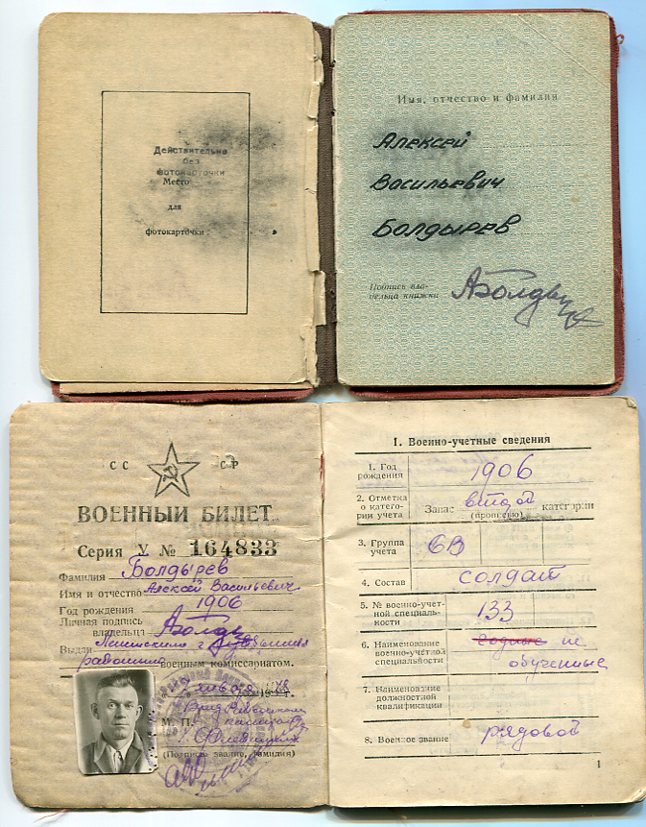 Действительно
без
фотокарточки
Место
для
фотокарточки
Имя, отчество и фамилия
Алексей
Васильевич
Болдырев
Подпись вла-
дельца книжки
СС СР
ВОЕННЫЙ БИЛЕТ
Серия У № 164833
Фамилия Болдырев
Имя и отчество Алексей Васильевич
Год рождения 1906
Личная подпись
владельца
Выдан Ленинским г.
районным военным комиссариатом.
М. П.
(Подпись, звание, фамилия)
1. Военно-учетные сведения
1. Год
рождения 1906
2. Отметка
о катего-
рии учета Запас второй категории
(прописью)
3. Группа
учета 6В
4. Состав солдат
5. № военно-учет-
ной специаль-
ности 133
6. Наименование
военно-учётной
специальности годные не
обученные
7. Наименование
должностной
квалификации
8. Военное звание рядовой
1